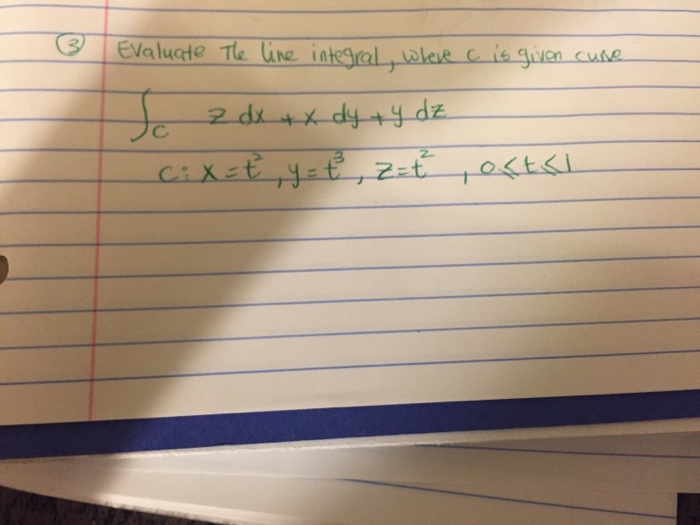 ③ Evaluate The line integral, where c is given curve
∫c z dx + x dy + y dz
C: x = t², y = t³, z = t², 0 ≤ t ≤ 1